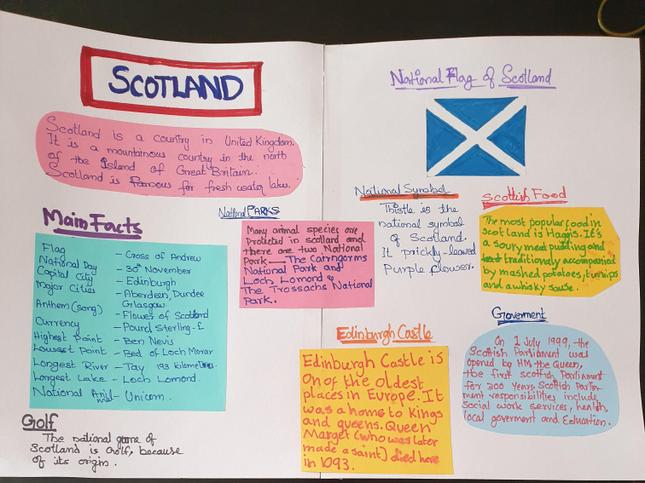 SCOTLAND
Scotland is a country in United Kingdom.
It is a mountainous country in the north
of the Island of Great Britain.
Scotland is famous for fresh water lakes.
Main Facts
Flag - Cross of Andrew
National Day - 30th November
Capital City - Edinburgh
Major Cities - Aberdeen, Dundee
Glasgow
Anthem (song) - Flower of Scotland
Currency - Pound Sterling-£
Highest Point - Ben Nevis
Lowest Point - Bed of Loch Morar
Longest River - Tay 193 kilometres
Longest Lake - Loch Lomond
National Animal - Unicorn.
Golf
The national game of
Scotland is Golf, because
of its origin.
National PARKS
Many animal species are
Protected in scotland and
there are two National
Park - The Cairngorms
National Park and
Loch Lomond &
The Trossachs National
Park.
National Flag of Scotland
National Symbol
Thistle is the
national symbol
of Scotland.
It prickly-leaved
Purple flower.
Scottish Food
The most popular food in
Scotland is Haggis. It's
a soury meat pudding and
traditionally accompanied
by mashed potatoes, turnips
and a whisky sause.
Edinburgh Castle
Edinburgh Castle is
on of the oldest
places in Europe. It
was a home to Kings
and queens. Queen
Marget (who was later
made a saint) died here
in 1093.
Goverment
On 1 July 1999, the
Scottish Parliament was
opened by HM the Queen,
the first scottish Parliament
for 300 years Scottish Parlia-
ment responsibilities include
Social work services, health,
local goverment and Education.